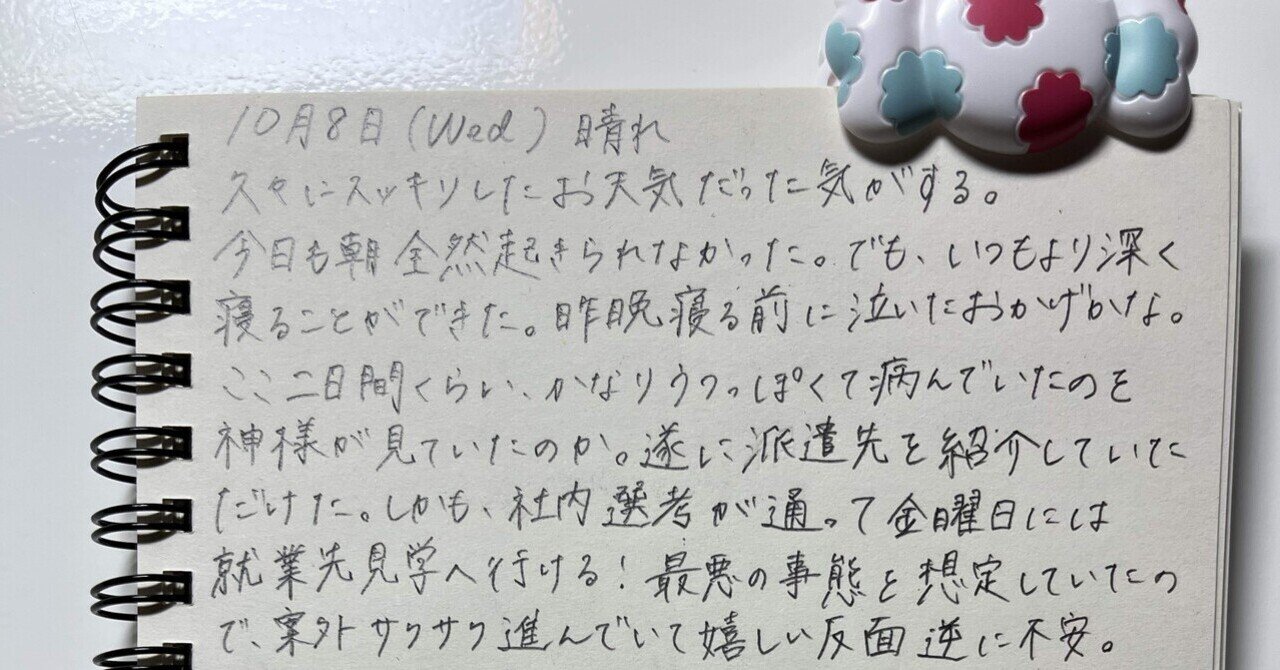 10月8日(Wed) 晴れ
久々にスッキリしたお天気だった気がする。
今日も朝全然起きられなかった。でも、いつもより深く
寝ることができた。昨晩寝る前に泣いたおかげかな。
ここ二日間くらい、かなりウツっぽくて病んでいたのを
神様が見ていたのか。遂に派遣先を紹介していた
だけた。しかも、社内選考が通って金曜日には
就業先見学へ行ける!最悪の事態を想定していたの
で、案外サクサク進んでいて嬉しい反面逆に不安。